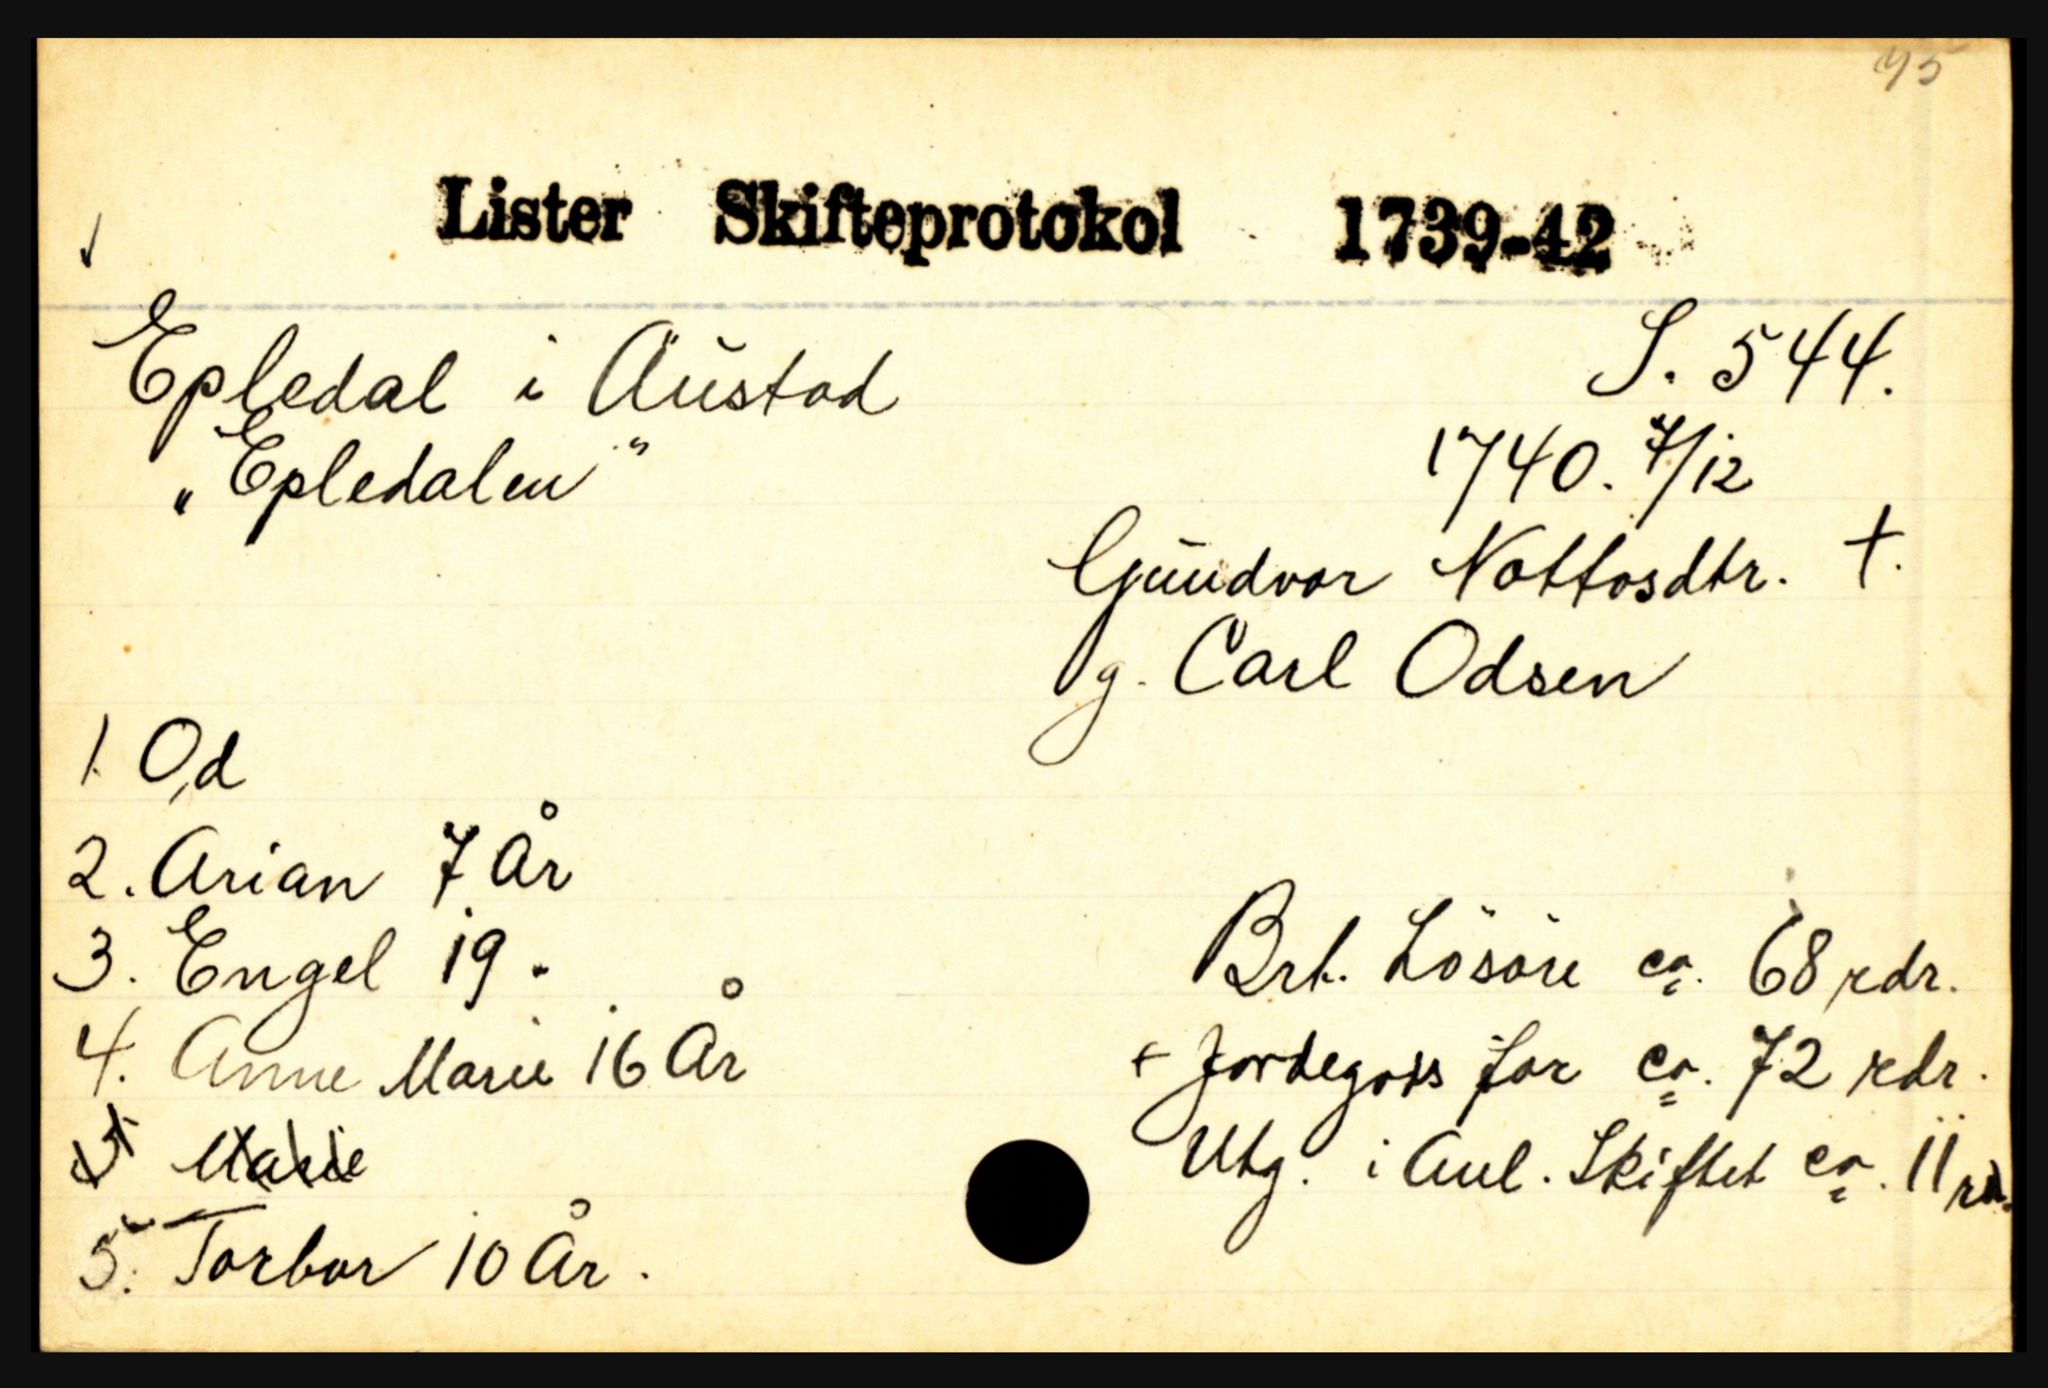 45
Lister Skifteprotokol 1739-42
Epledal i Austad S. 544.
„Epledalen” 1740. 7/12
Gundvor Nottosdtr. †.
g. Carl Odsen
1. Od
2. Arian 7 År
3. Engel 19 "
4. Anne Marie 16 År
4. Marie
5. Torbor 10 År.
Brt. Lösöre ca. 68 rdr.
+ Jordegods for ca. 72 rdr.
Utg. i Anl. Skiftet ca. 11 rd.